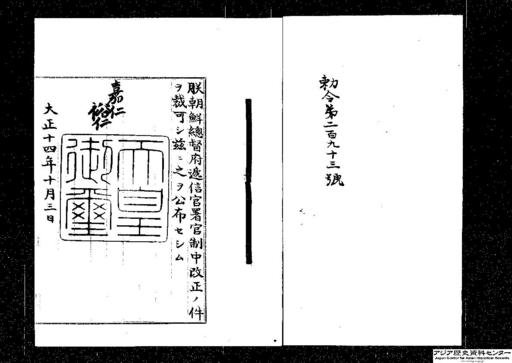 勅令第二百九十三號
朕朝鮮總督府遞信官署官制中改正ノ件
ヲ裁可シ玆ニ之ヲ公布セシム
嘉仁
裕仁
天皇
御璽
大正十四年十月三日
アジア歴史資料センター
Japan Center for Asian Historical Records